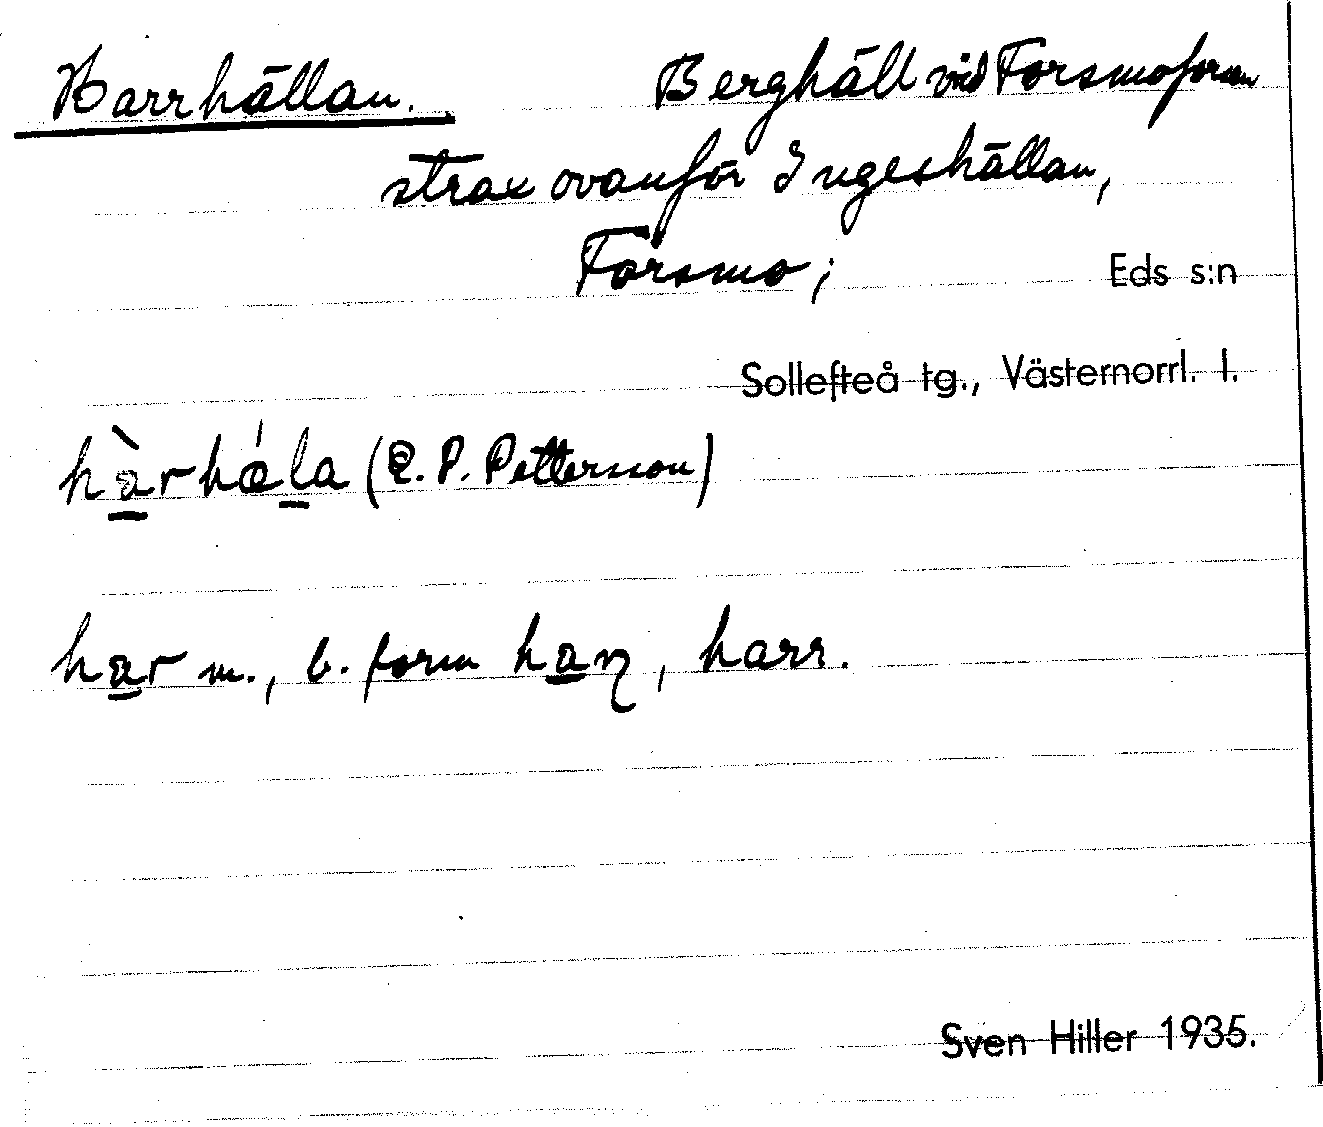 Harrhällan. Berghäll vid Forsmoforsen
strax ovanför Ingeshällan,
Forsmo; Eds s:n
Sollefteå tg., Västernorrl. l.
hàrhǽla (E. P. Pettersson)
har m., b. form haɳ, harr.
Sven Hiller 1935.